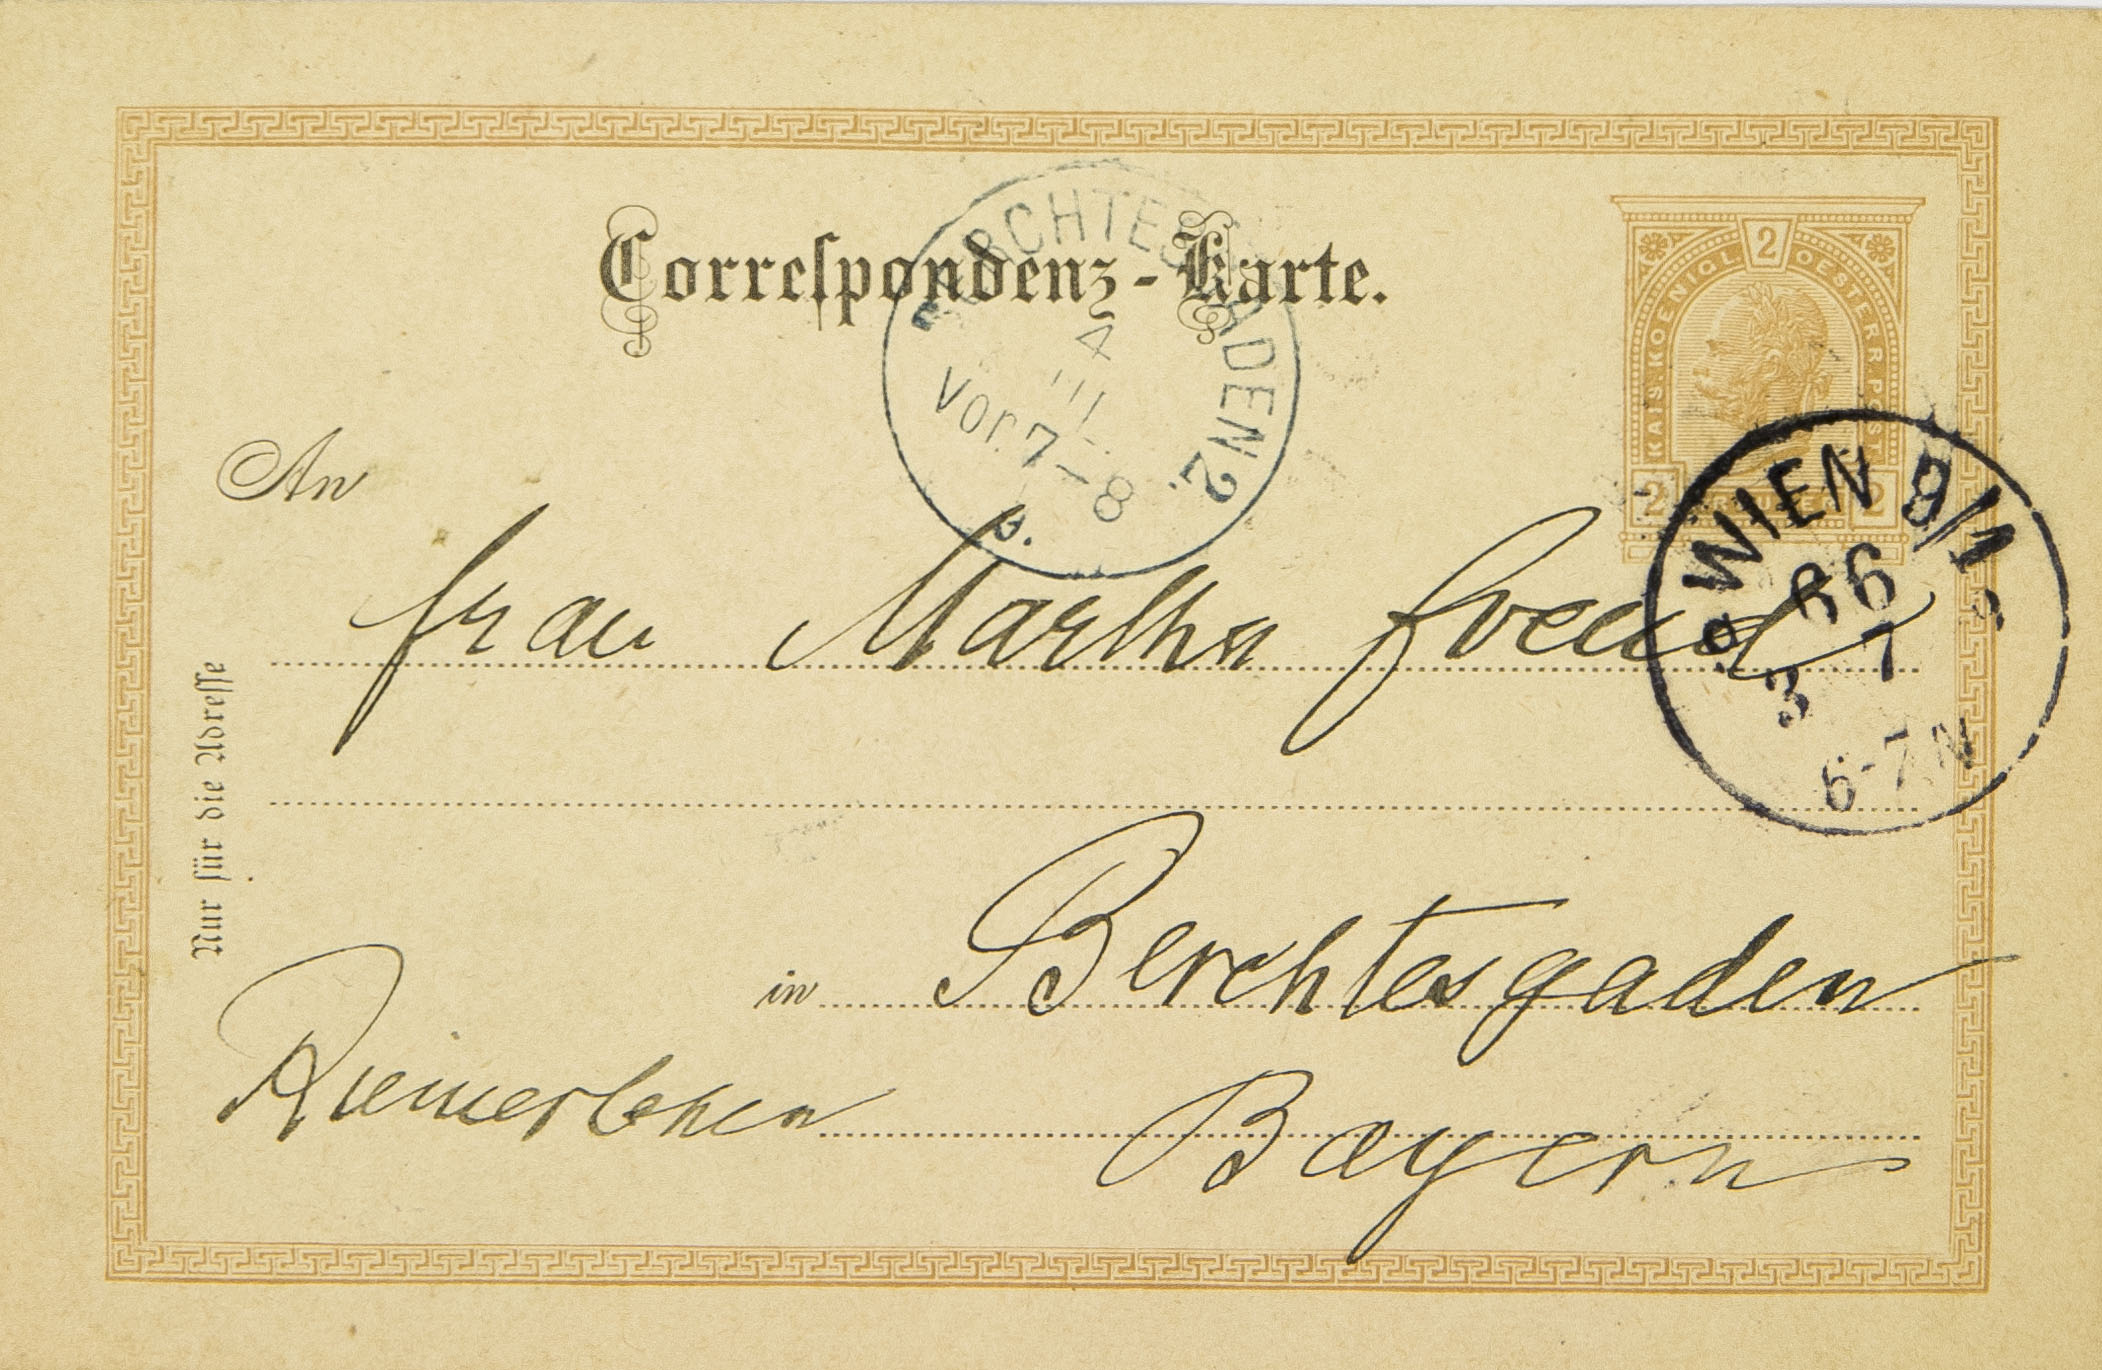 Correspondenz-Karte.
BERCHTESGADEN 2.
4
Vor 7-8
KAIS. KOENIGL. OESTERR. POST
2
2 2
WIEN 9/1
3 7
6-7N
An
Frau Martha Freud
in Berchtesgaden
Riemerlehen
Bayern
Nur für die Adresse